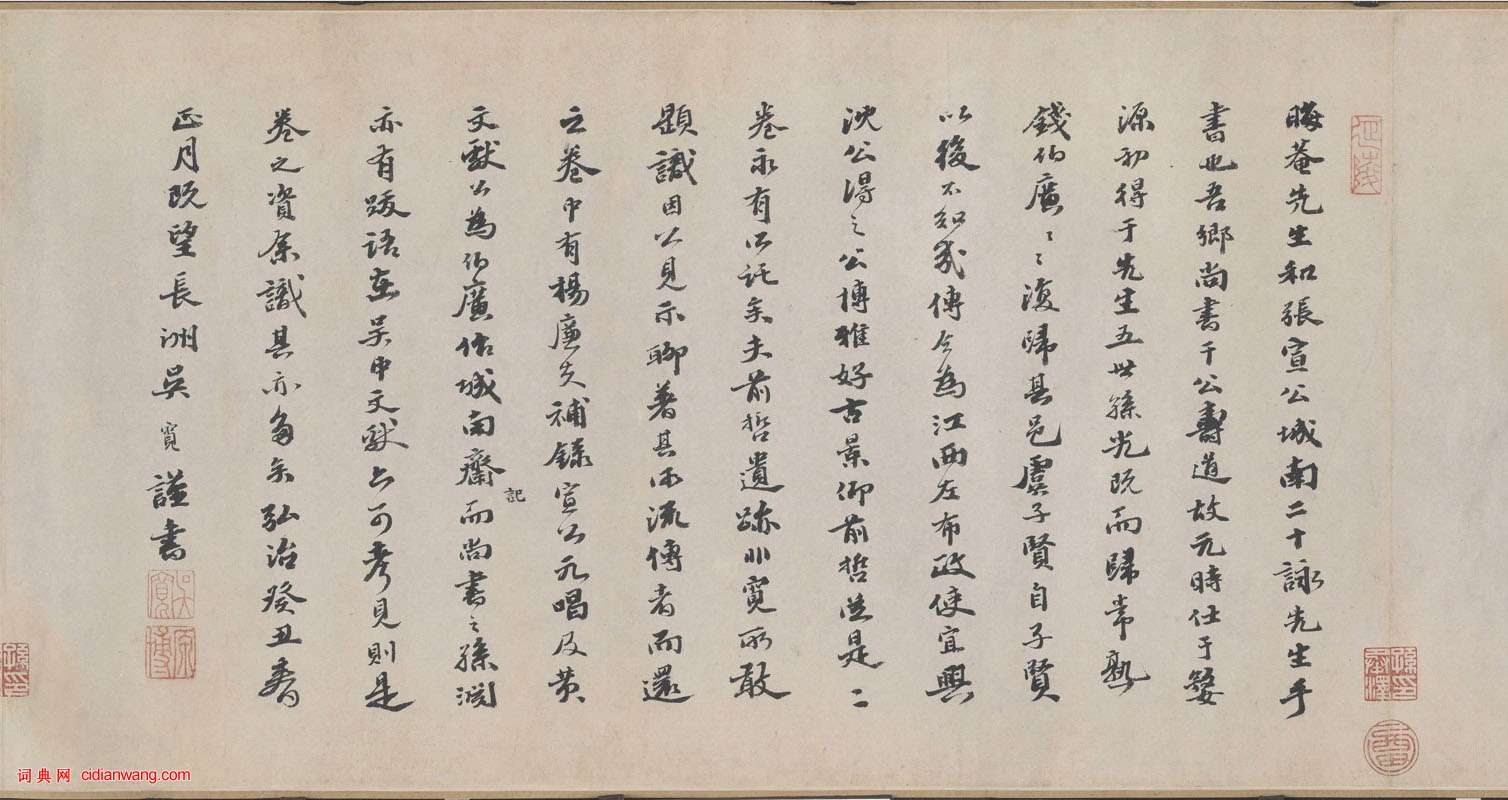 延陵
晦菴先生和張宣公城南二十詠先生手
書也吾鄉尚書干公壽道故元時仕于婺
源初得于先生五世孫光既而歸常熟
錢伯廣〻〻復歸其邑虞子賢自子賢
以後不知幾傳今為江西左布政使宜興
沈公得之公博雅好古景仰前哲是二
卷永有所託矣夫前哲遺跡非寬所敢
題識因以見示聊著其所流傳者而還
之卷中有楊廉夫補錄宣公元唱及黃
文獻公為伯廣作城南齋記而尚書之孫潤
亦有跋語在吳中文獻亦可考見則是
卷之資余識其亦多矣弘治癸丑春
正月既望長洲吳寬謹書
吳寬
原博
词典网 cidianwang.com